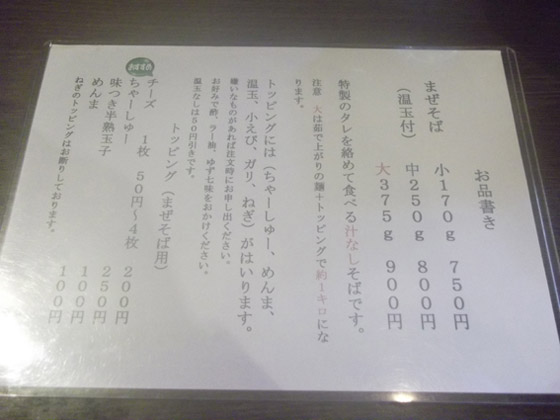 お品書き
まぜそば　小170g　750円
（温玉付）　中250g　800円
大375g　900円
特製のタレを絡めて食べる汁なしそばです。
注意　大は茹で上がりの麺＋トッピングで約1キロにな
ります。
トッピングには（ちゃーしゅー、めんま、
温玉、小えび、ガリ、ねぎ）がはいります。
嫌いなものがあれば注文時にお申し出ください。
お好みで酢、ラー油、ゆず七味をおかけください。
温玉なしは50円引きです。
トッピング（まぜそば用）
おすすめ
チーズ　1枚　50円～4枚　200円
ちゃーしゅー　250円
味つき半熟玉子　100円
めんま　100円
ねぎのトッピングはお断りしております。